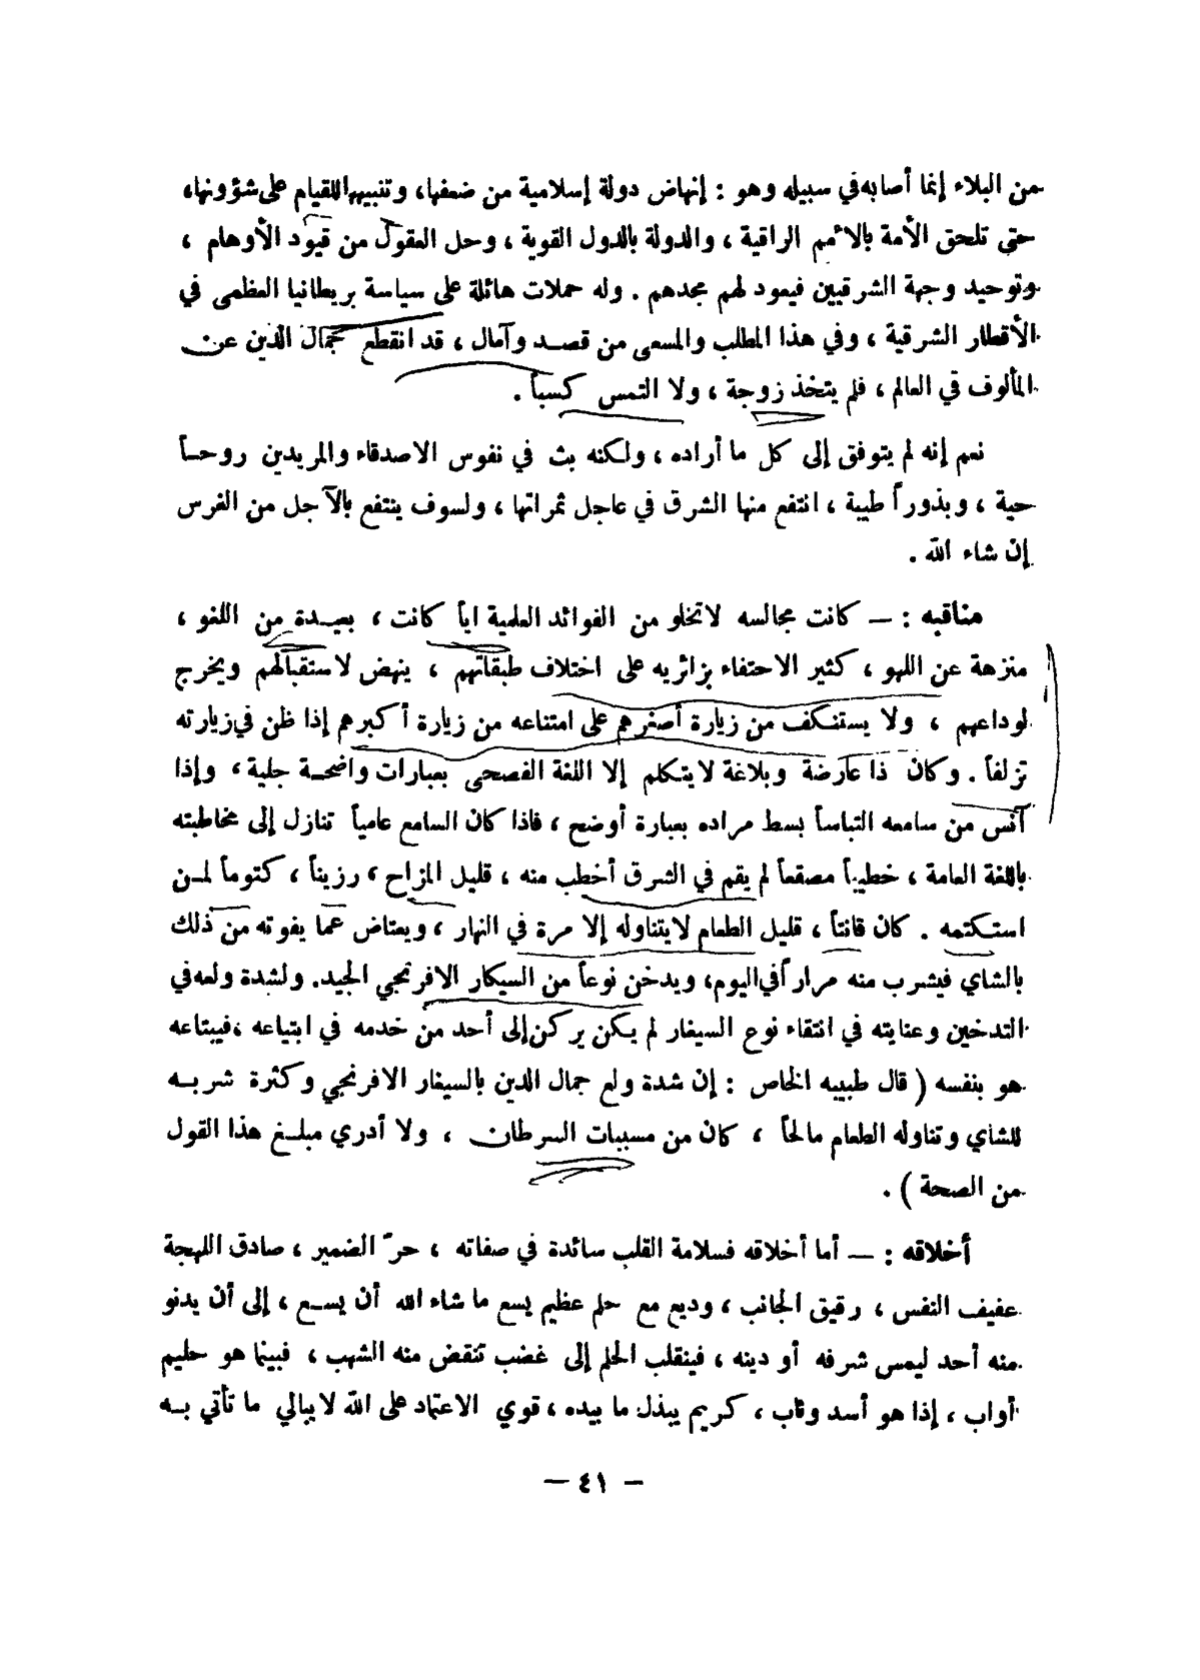 من البلاء إنما أصابه في سبيله وهو : إنهاض دولة إسلامية من ضعفها، وتنبيهها للقيام على شؤونها،
حتى تلحق الأمة بالأمم الراقية ، والدولة بالدول القوية ، وحل العقول من قيود الأوهام ،
وتوحيد وجهة الشرقيين فيعود لهم مجدهم . وله حملات هائلة على سياسة بريطانيا العظمى في
الأقطار الشرقية ، وفي هذا المطلب والمسعى من قصد وآمال ، قد انقطع جمال الدين عن
المألوف في العالم ، فلم يتخذ زوجة ، ولا التمس كسباً .
نعم إنه لم يتوفق إلى كل ما أراده ، ولكنه بث في نفوس الاصدقاء والمريدين روحاً
حية ، وبذوراً طيبة ، انتفع منها الشرق في عاجل ثمراتها ، ولسوف ينتفع بالآجل من الغرس
إن شاء الله .
مناقبه : — كانت مجالسه لا تخلو من الفوائد العلمية اياً كانت ، بعيدة من اللغو ،
منزهة عن اللهو ، كثير الاحتفاء بزائريه على اختلاف طبقاتهم ، ينهض لاستقبالهم ويخرج
لوداعهم ، ولا يستنكف من زيارة أصغرهم على امتناعه من زيارة أكبرهم إذا ظن في زيارته
تزلفاً . وكان ذا عارضة وبلاغة لا يتكلم إلا اللغة الفصحى بعبارات واضحة جلية ، وإذا
آنس من سامعه التباساً بسط مراده بعبارة أوضح ، فاذا كان السامع عامياً تنازل إلى مخاطبته
باللغة العامة ، خطيباً مصقعاً لم يقم في الشرق أخطب منه ، قليل المزاح ، رزيناً ، كتوماً لمن
استكتمه . كان قانتاً ، قليل الطعام لا يتناوله إلا مرة في النهار ، ويعتاض عما يفوته من ذلك
بالشاي فيشرب منه مراراً في اليوم، ويدخن نوعاً من السيكار الافرنجي الجيد. ولشدة ولعه في
التدخين وعنايته في انتقاء نوع السيغار لم يكن يركن إلى أحد من خدمه في ابتياعه ،فيبتاعه
هو بنفسه ( قال طبيبه الخاص : إن شدة ولع جمال الدين بالسيغار الافرنجي وكثرة شربه
للشاي وتناوله الطعام مالحاً ، كان من مسببات السرطان ، ولا أدري مبلغ هذا القول
من الصحة ) .
أخلاقه : — أما أخلاقه فسلامة القلب سائدة في صفاته ، حرّ الضمير ، صادق اللهجة
عفيف النفس ، رقيق الجانب ، وديع مع حلم عظيم يسع ما شاء الله أن يسع ، إلى أن يدنو
منه أحد ليمس شرفه أو دينه ، فينقلب الحلم إلى غضب تنقض منه الشهب ، فبينما هو حليم
أواب ، إذا هو أسد وثاب ، كريم يبذل ما بيده ، قوي الاعتماد على الله لا يبالي ما تأتي به
— ٤١ —